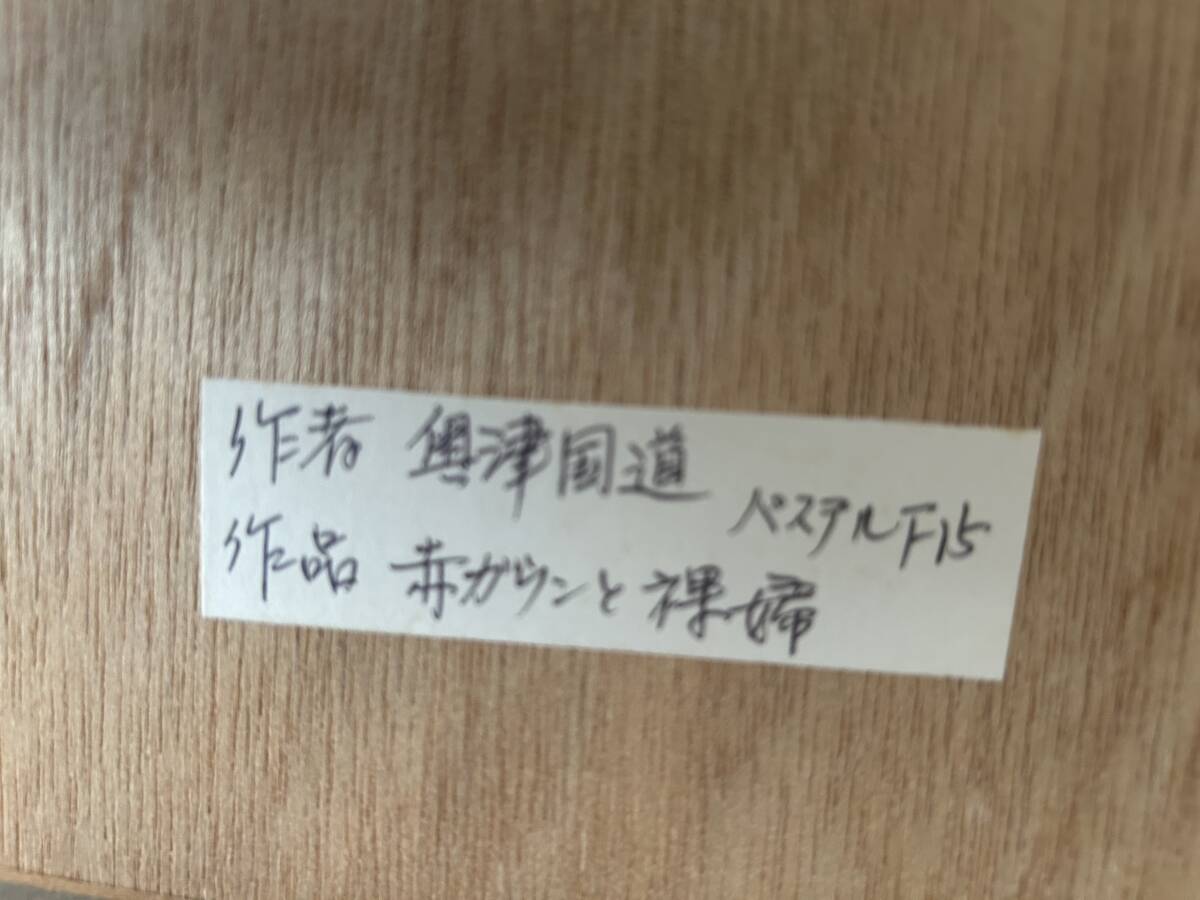 作者 奥津国道
パステルF15
作品 赤ガウンと裸婦